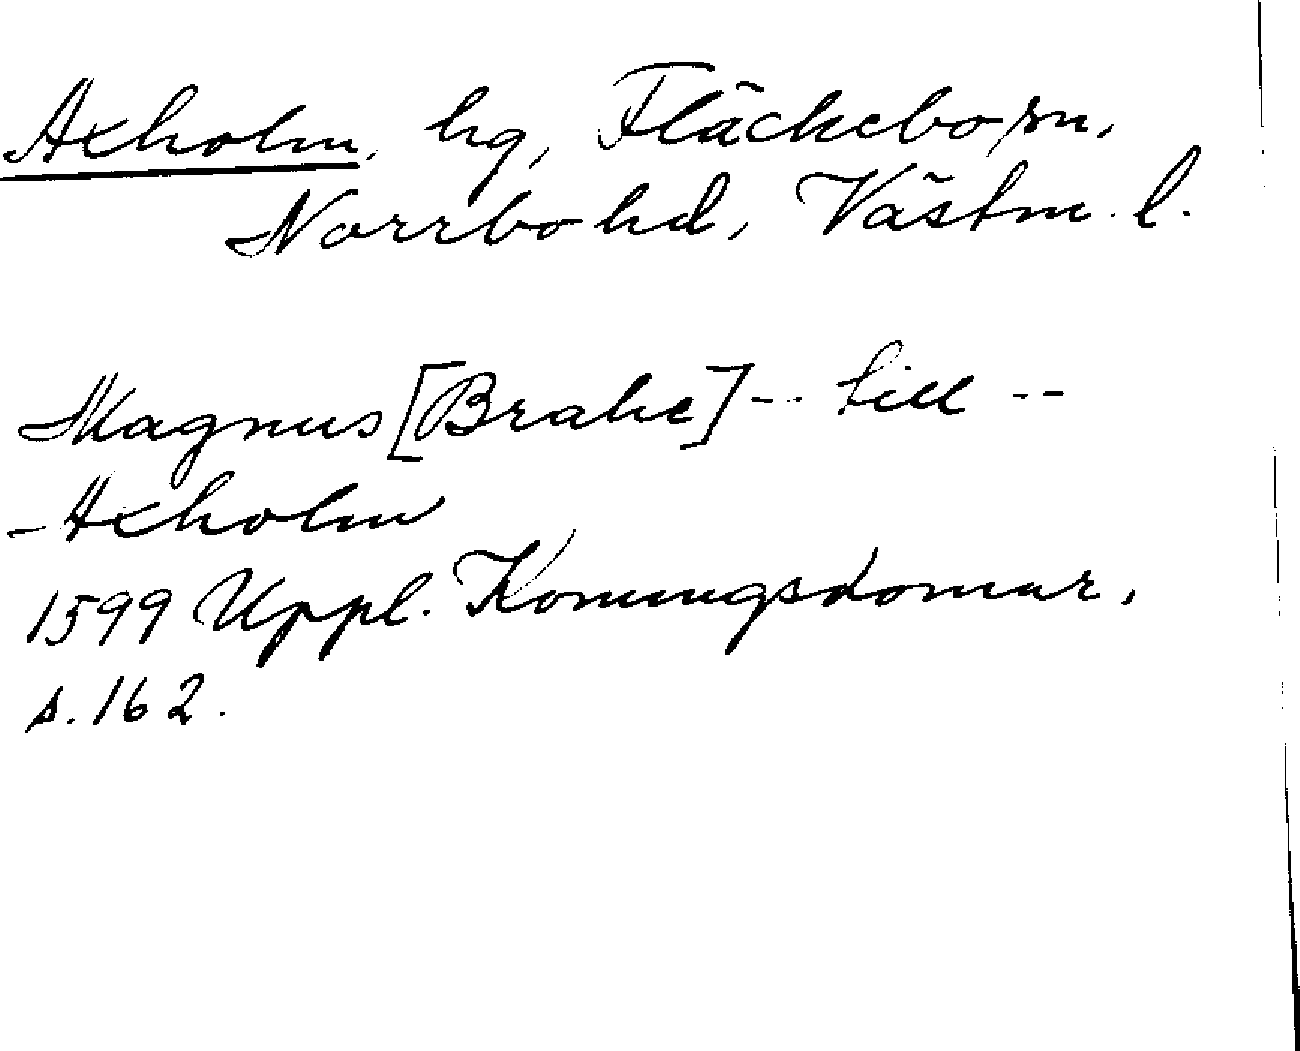 Axholm, hg, Fläckebo sn,
Norrbo hd, Västm. l.
Magnus [Brahe] -- till --
-Axholm
1599 Uppl. Konungsdomar,
s. 162.